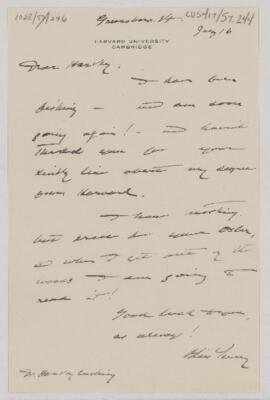 Greensboro, Vt.
CUS417/57.244
July 16
HARVARD UNIVERSITY
CAMBRIDGE
Dear Harvey,
I have been
fishing — and am soon
going again! — and haven't
thanked you for your
kindly line about my degree
from Harvard.
I have nothing
but praise for your Osler,
and when I get out of the
woods I am going to
read it!
Good luck to you,
as always!
Bliss Perry
Dr. Harvey Cushing